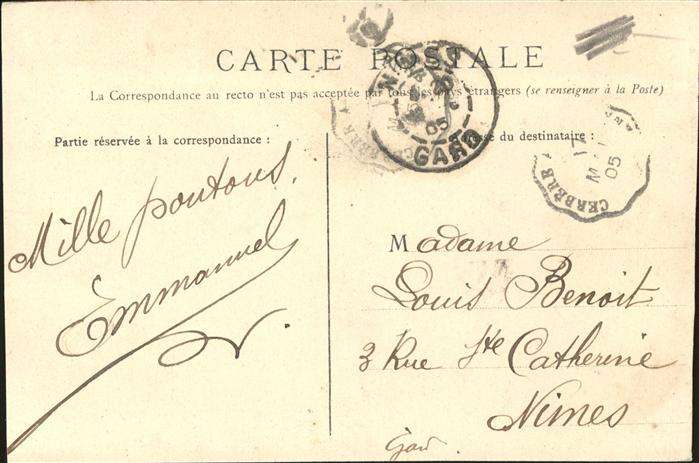 CARTE POSTALE
La Correspondance au recto n'est pas acceptée par tous les pays étrangers (se renseigner à la Poste)
Partie réservée à la correspondance :
Mille poutous.
Emmanuel
Adresse du destinataire :
Madame
Louis Benoit
3 Rue Ste Catherine
Nimes
Gard
NIMES
05
GARD
CERBERE
17
05